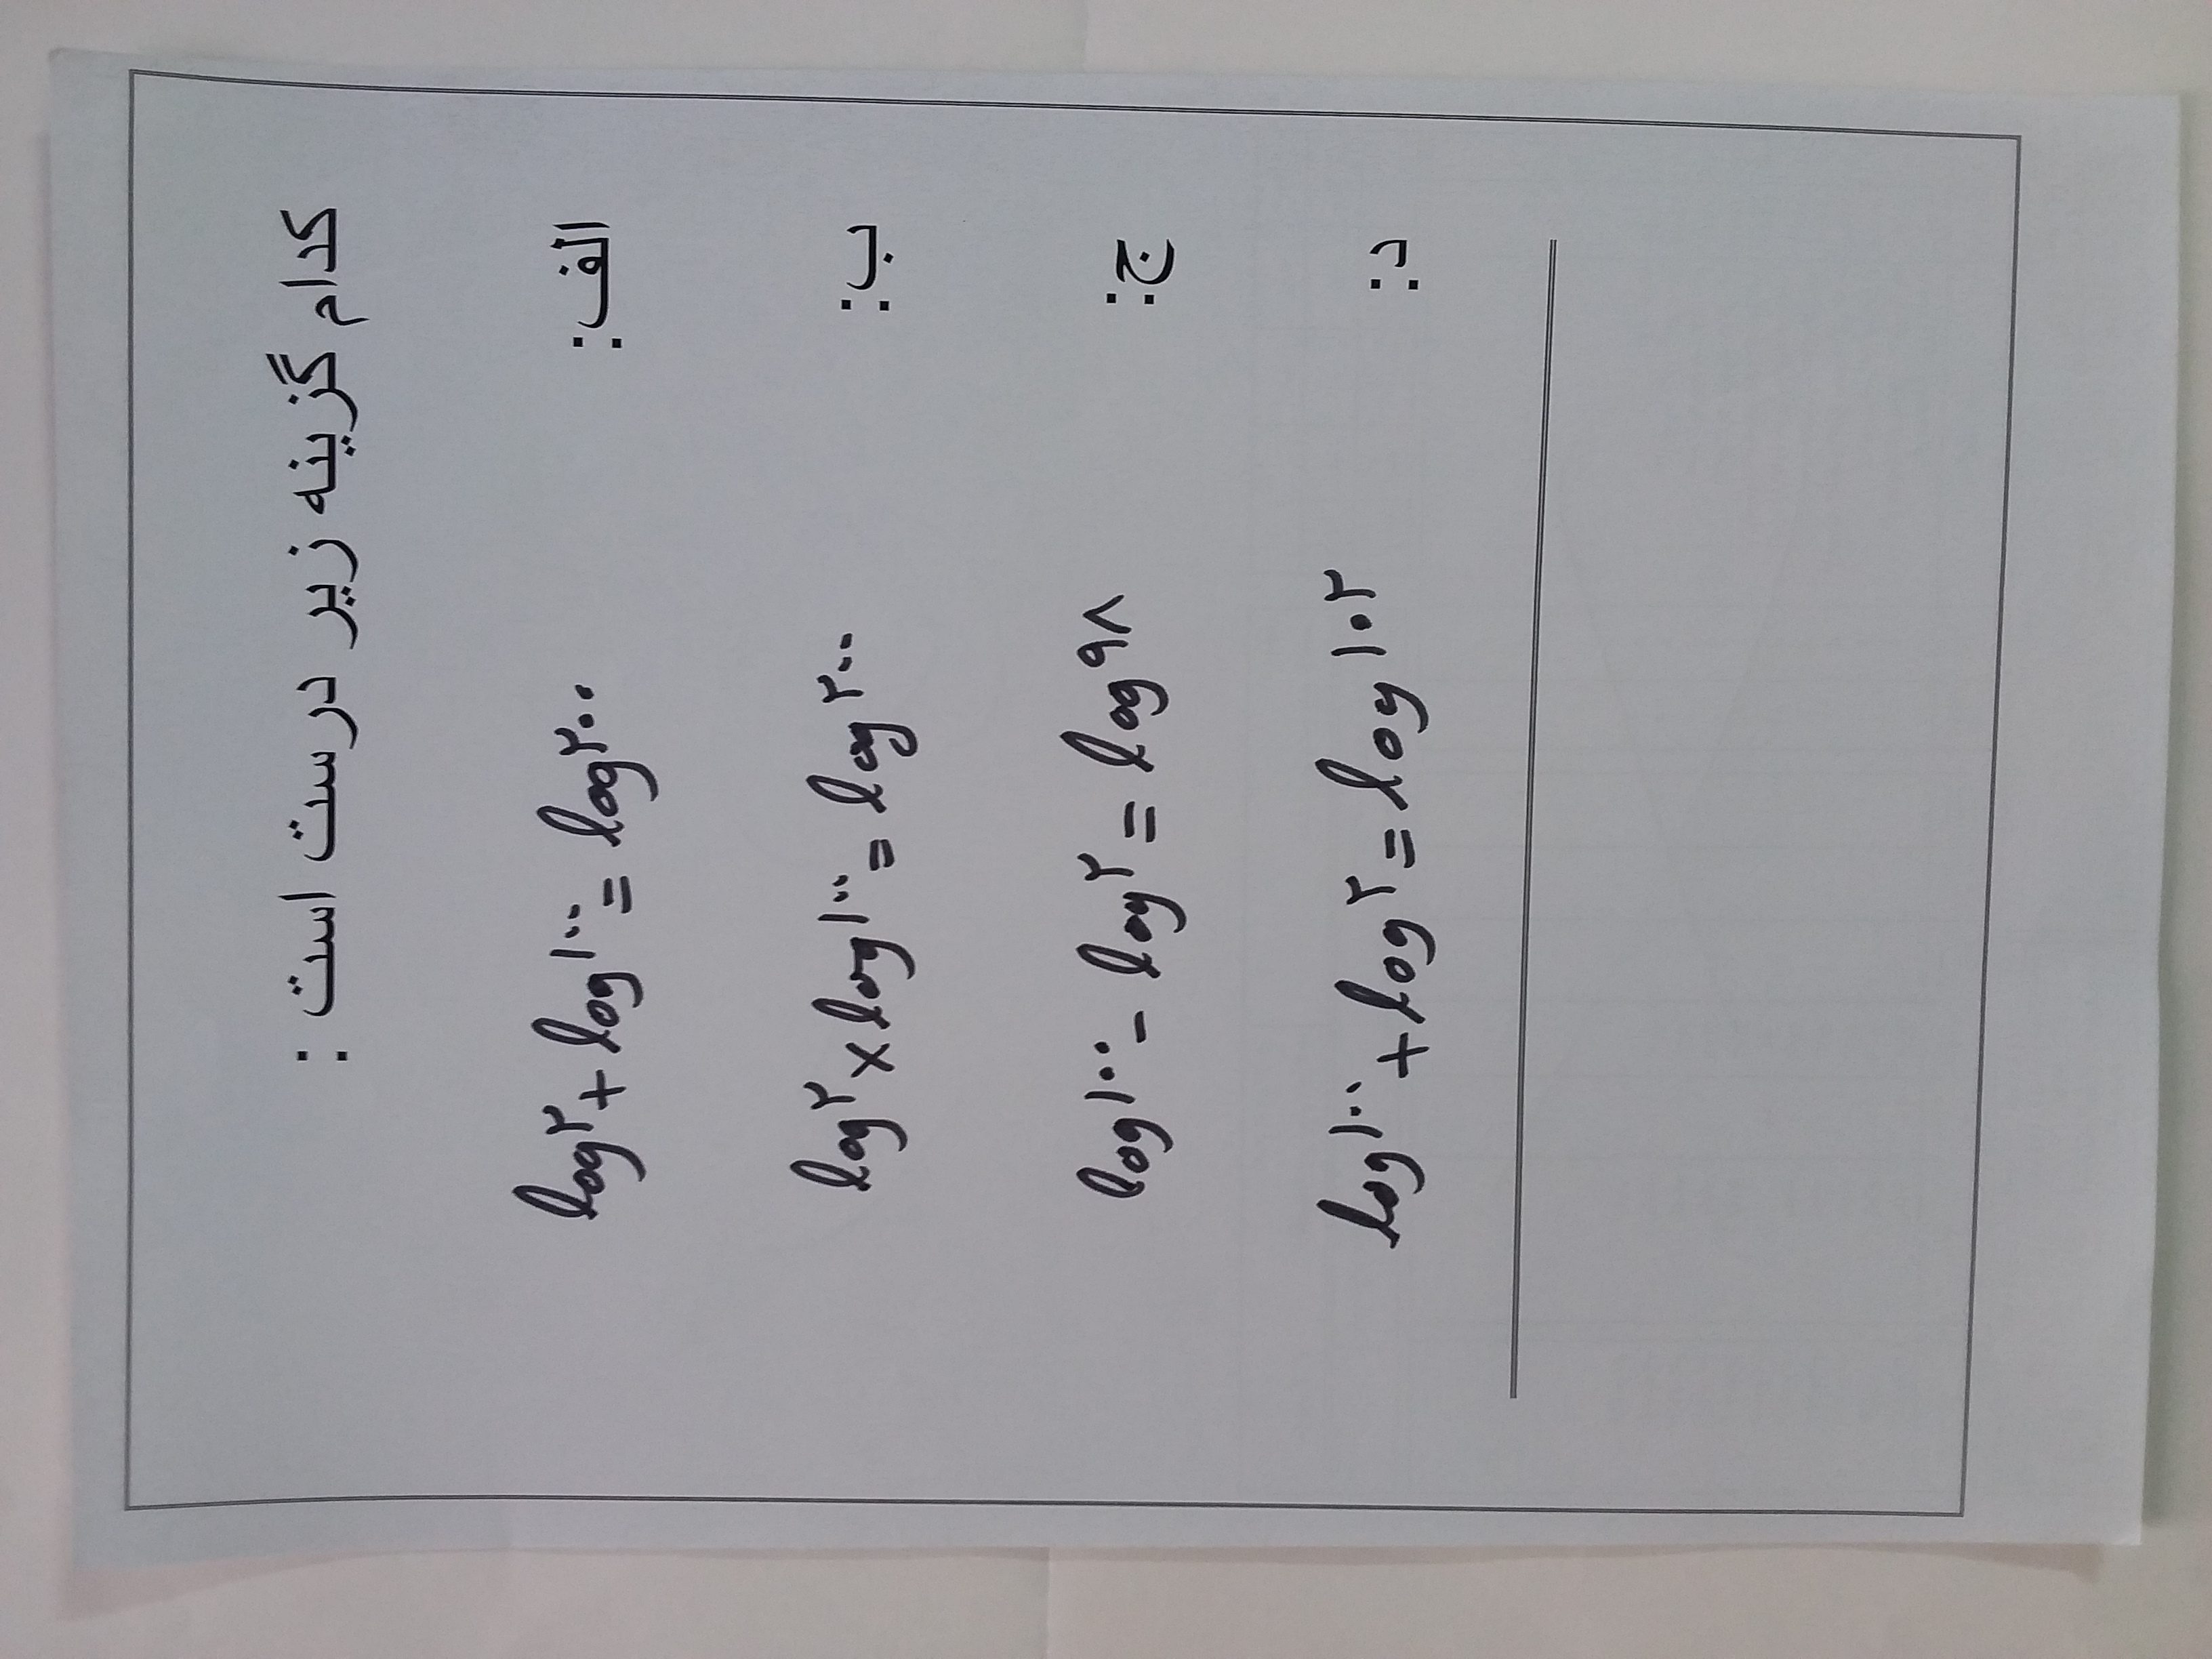 کدام گزینه زیر درست است :
الف: log۲ + log۱۰۰ = log۲۰۰
ب: log۲ × log۱۰۰ = log۲۰۰
ج: log۱۰۰ - log۲ = log۹۸
د: log۱۰۰ + log۲ = log۱۰۲